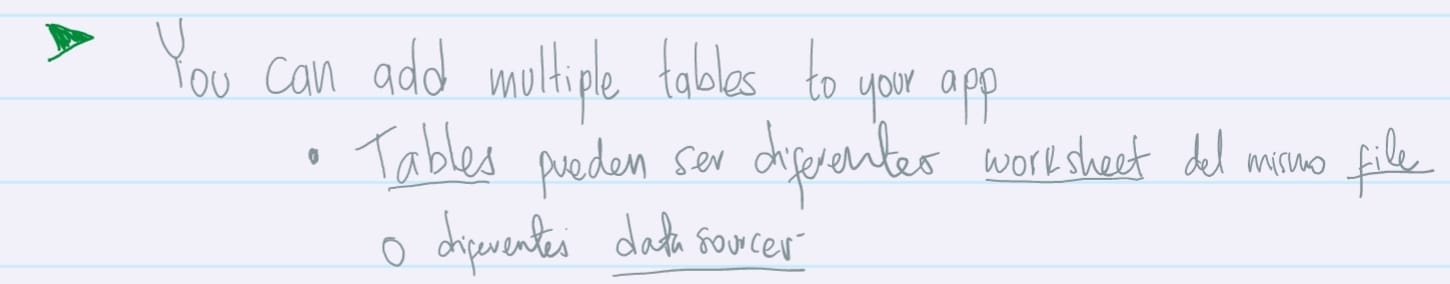 You can add multiple tables to your app
• Tables pueden ser diferentes worksheet del mismo file
o diferentes data sources